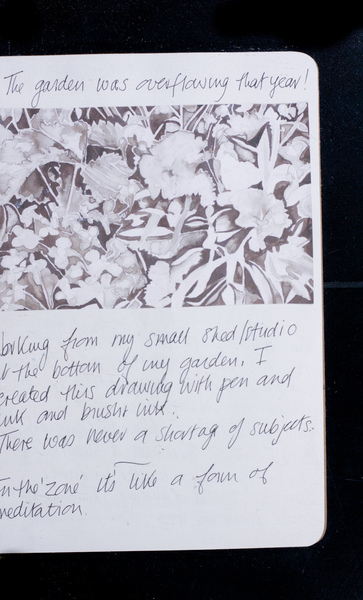 The garden was overflowing that year!
orking from my small shed/studio
t the bottom of my garden. I
created this drawing with pen and
ink and brush ink.
There was never a shortag of subjects.
In the 'zone' it's like a form of
meditation.